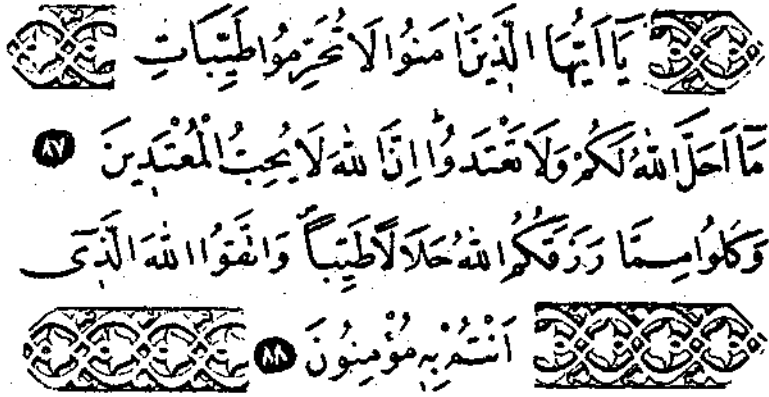 يَٓا اَيُّهَا الَّذ۪ينَ اٰمَنُوا لَا تُحَرِّمُوا طَيِّبَاتِ
مَٓا اَحَلَّ اللّٰهُ لَكُمْ وَلَا تَعْتَدُواۜ اِنَّ اللّٰهَ لَا يُحِبُّ الْمُعْتَد۪ينَ ٨٧
وَكُلُوا مِمَّا رَزَقَكُمُ اللّٰهُ حَلَالًا طَيِّبًاۖ وَاتَّقُوا اللّٰهَ الَّذ۪ٓي
اَنْتُمْ بِه۪ مُؤْمِنُونَ ٨٨